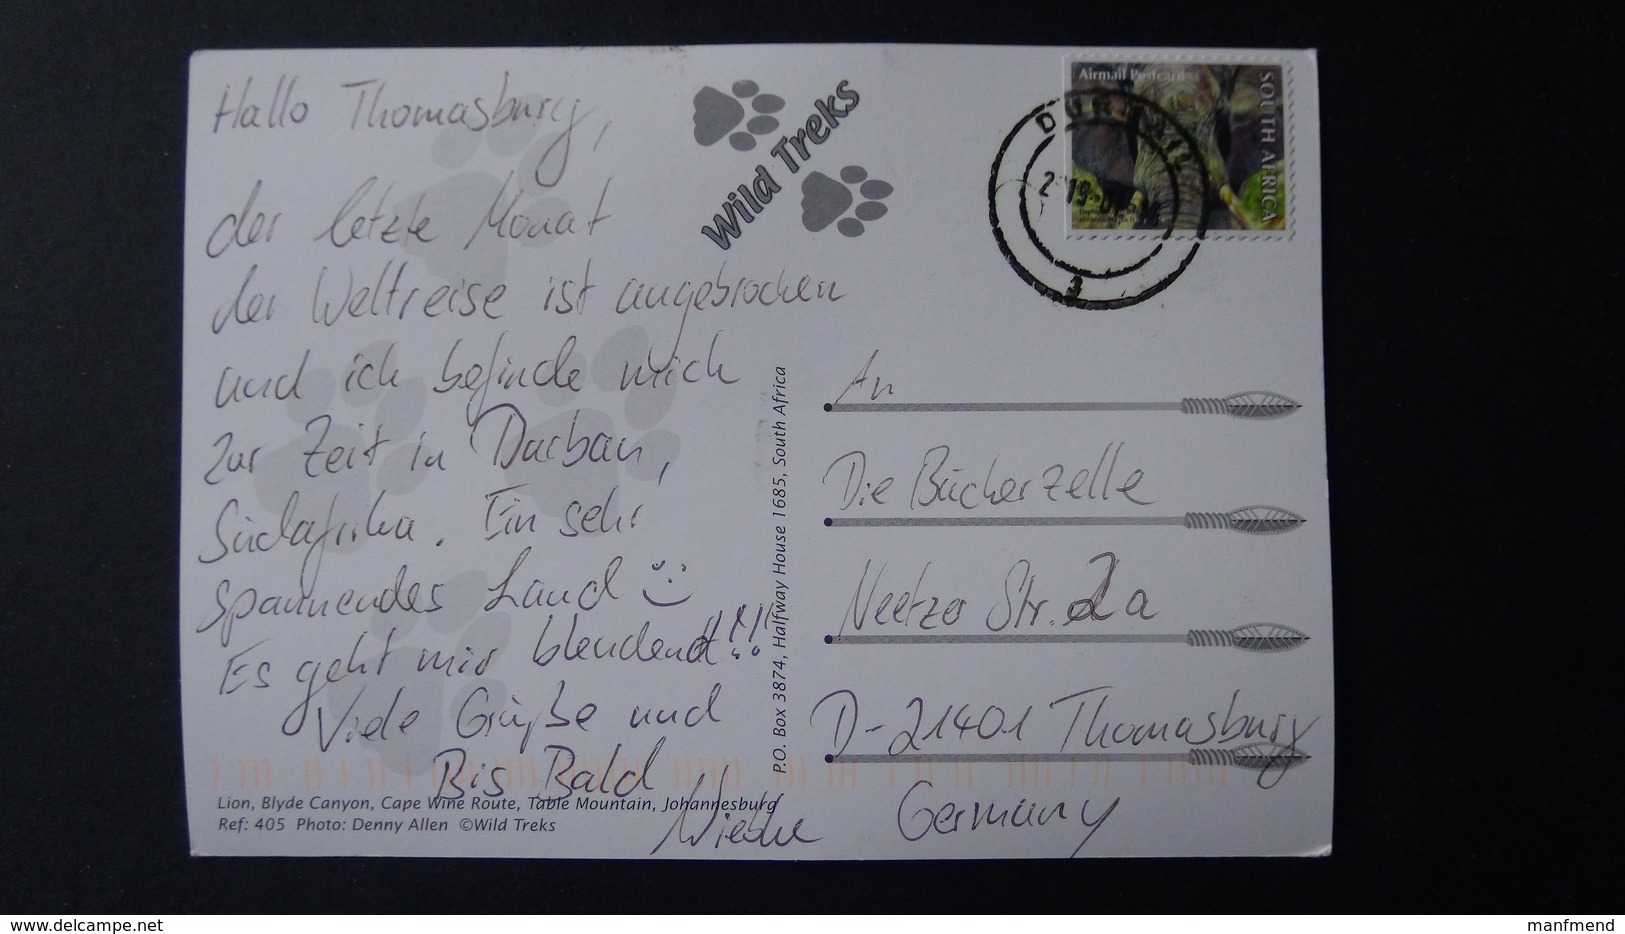 Hallo Thomasburg,
der letzte Monat
der Weltreise ist angebrochen
und ich befinde mich
zur Zeit in Durban,
Südafrika. Ein sehr
spannendes Land
Es geht mir blendend!!!
Viele Grüße und
Bis Bald
Lion, Blyde Canyon, Cape Wine Route, Table Mountain, Johannesburg
Ref: 405 Photo: Denny Allen ©Wild Treks
Wild Treks
P.O. Box 3874, Halfway House 1685, South Africa
Airmail Postcard
SOUTH AFRICA
3
An
Die Bücherzelle
Neetzer Str. 2a
D-21401 Thomasburg
Germany
manfmend